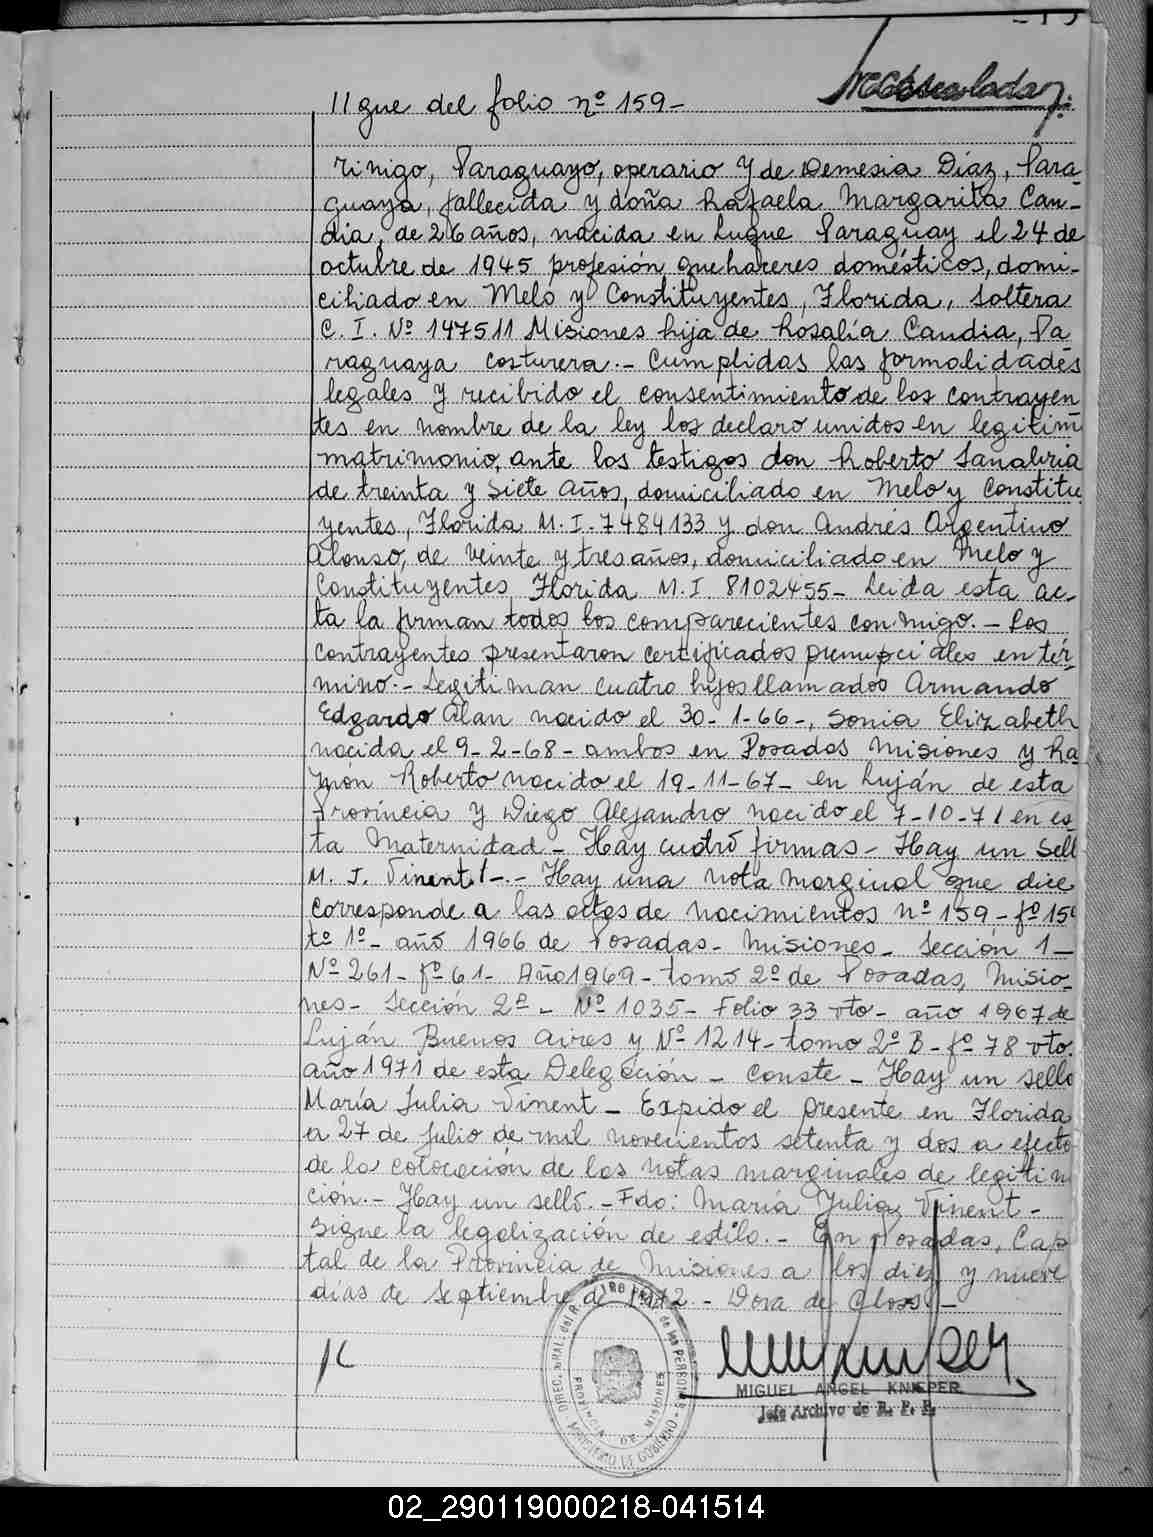 Sigue del folio nº 159-
rinigo, Paraguayo, operario y de Demesia Díaz, Para-
guaya, fallecida y doña Rafaela Margarita Can-
dia, de 26 años, nacida en Luque Paraguay el 24 de
octubre de 1945 profesión quehaceres domésticos, domi-
ciliado en Melo y Constituyentes, Florida, soltera
C. I. Nº 147511 Misiones hija de Rosalía Candia, Pa
raguaya costurera.- Cumplidas las formalidades
legales y recibido el consentimiento de los contrayen
tes en nombre de la ley los declaro unidos en legitim
matrimonio, ante los testigos don Roberto Sanabria
de treinta y siete años, domiciliado en Melo y Constitu
yentes, Florida M. I. 7484133 y don Andrés Argentino
Alonso, de veinte y tres años, domiciliado en Melo y
Constituyentes Florida M. I. 8102455- Leida esta ac-
ta la firman todos los comparecientes conmigo.- Los
contrayentes presentaron certificados prenupciales en tér-
mino.- Legitiman cuatro hijos llamados Armando
Edgardo Alan nacido el 30-1-66-, Sonia Elizabeth
nacida el 9-2-68- ambos en Posadas Misiones y Ra
món Roberto nacido el 19-11-67- en Luján de esta
Provincia y Diego Alejandro nacido el 7-10-71 en es-
ta Maternidad- Hay cuatro firmas- Hay un sell
M. J. Vinent!-.- Hay una nota marginal que dice
corresponde a las actas de nacimientos nº 159-fº 159
tº 1º- año 1966 de Posadas- Misiones- Sección 1-
Nº 261- fº 61- Año 1969- tomo 2º de Posadas, Misio-
nes- Sección 2ª- Nº 1035- Folio 33 vto- año 1967 de
Luján Buenos Aires y Nº 1214- tomo 2º B- fº 78 vto.
año 1971 de esta Delegación- Conste- Hay un sello
María Julia Vinent- Expido el presente en Florida
a 27 de Julio de mil novecientos setenta y dos a efecto
de la colocación de las notas marginales de legitim
ción.- Hay un sello.- Fdo: María Julia Vinent-
Sigue la legalización de estilo.- En Posadas, Cap
tal de la Provincia de Misiones a los diez y nueve
días de Septiembre de 1972.- Dora de
DIREC. GRAL. del R. PROV. de las PERSONAS
PROVINCIA DE MISIONES
MINISTERIO DE GOBIERNO
MIGUEL ANGEL KNIEPER
Jefe Archivo de R. P. P.
02_290119000218-041514